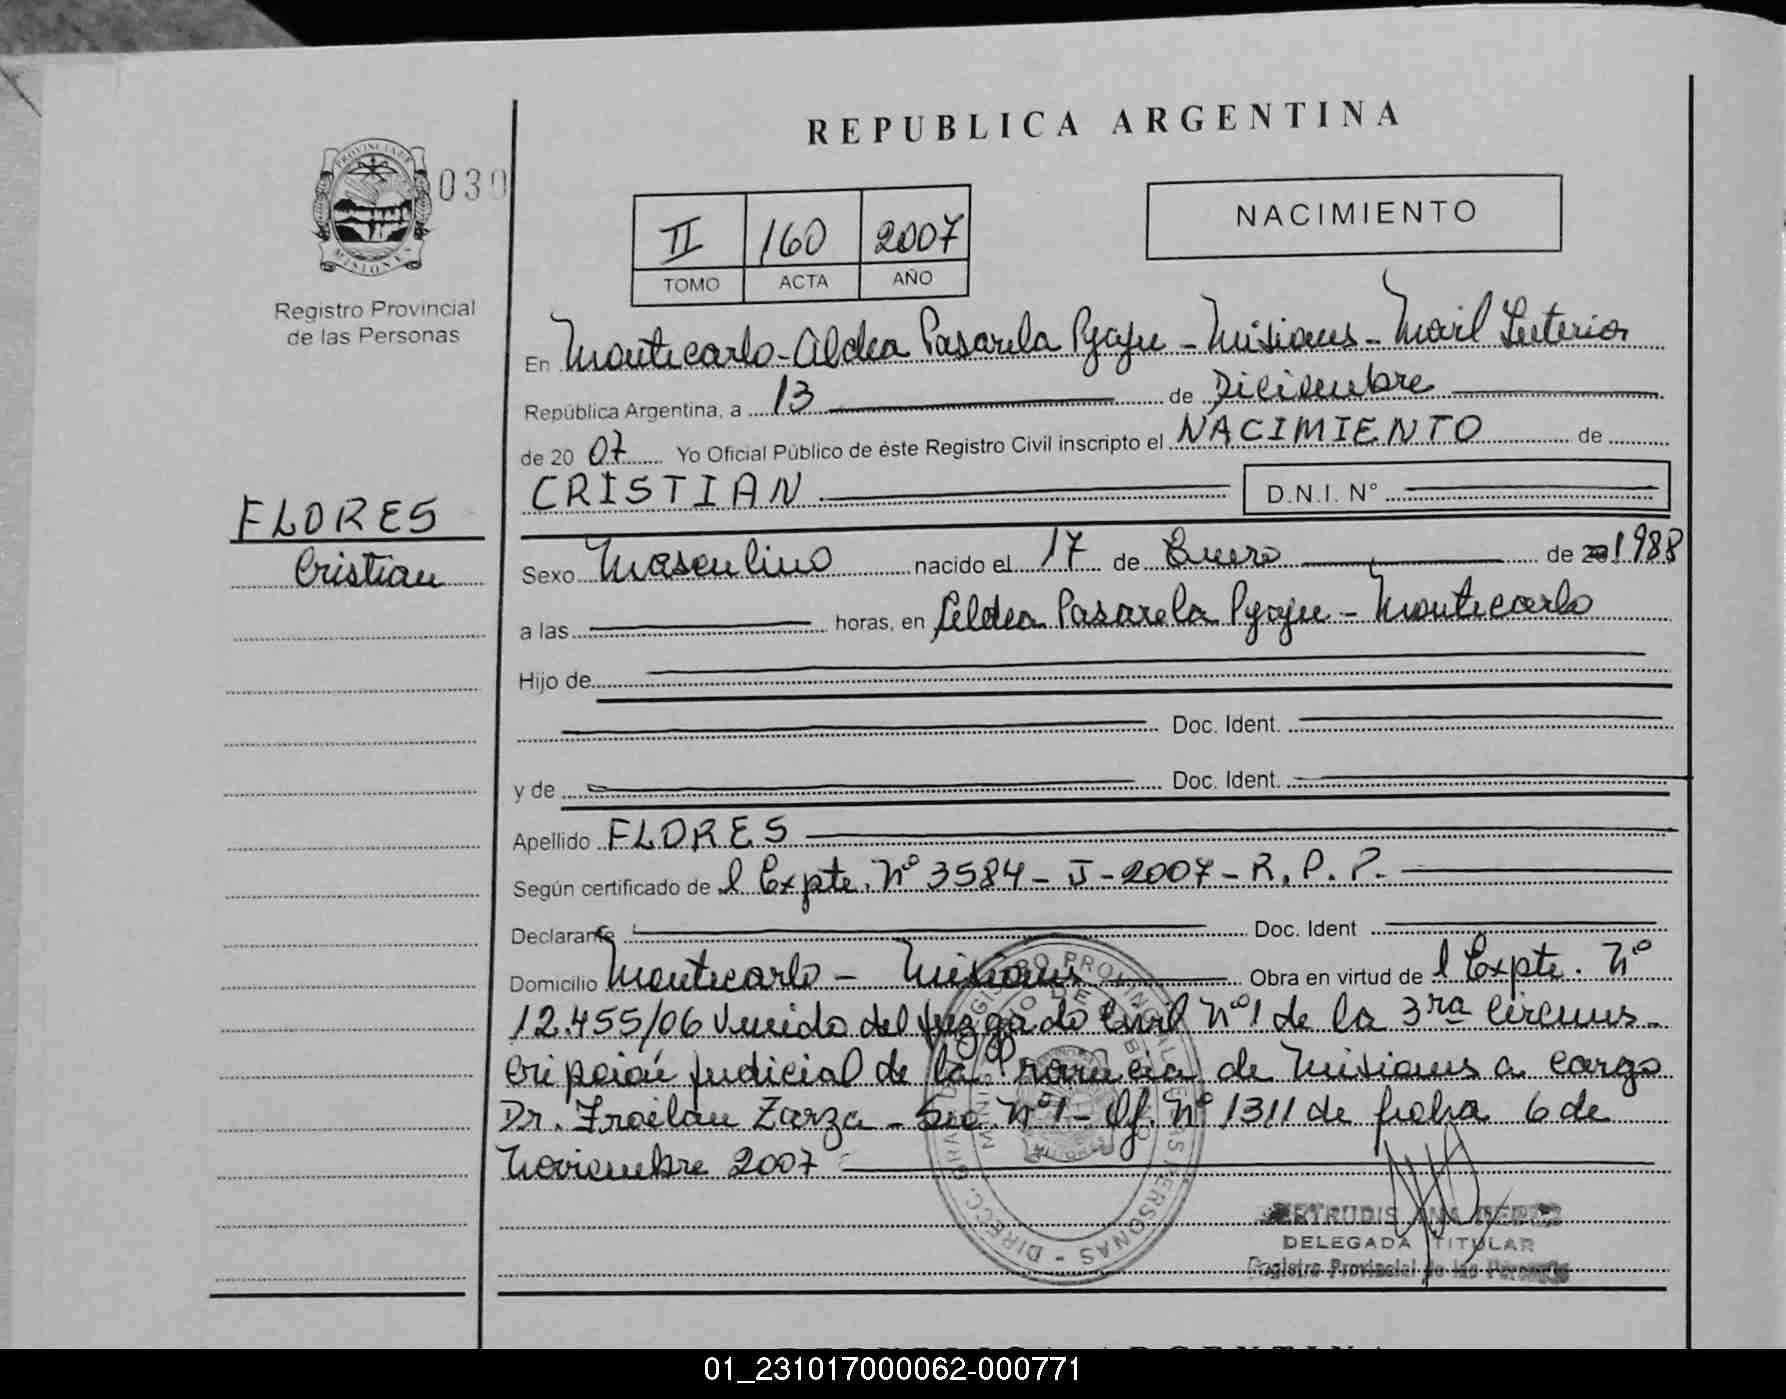 REPUBLICA ARGENTINA
PROVINCIA DE
MISIONES
030
Registro Provincial
de las Personas
II 160 2007
TOMO ACTA AÑO
NACIMIENTO
En Montecarlo - Aldea Pasarela Pyaju - Misiones - Movil Interior
República Argentina, a 13 de Diciembre
de 20 07 Yo Oficial Público de éste Registro Civil inscripto el NACIMIENTO de
CRISTIAN D.N.I. N°
FLORES
Cristian
Sexo Masculino nacido el 17 de Enero de 20 1988
a las horas, en Aldea Pasarela Pyaju - Montecarlo
Hijo de
Doc. Ident.
y de Doc. Ident.
Apellido FLORES
Según certificado de l Expte. Nº 3584 - J - 2007 - R. P. P.
Declarante Doc. Ident
Domicilio Montecarlo - Misiones Obra en virtud de l Expte. Nº
12.455/06 Venido del Juzgado Civil Nº 1 de la 3ra Circuns-
cripción Judicial de la Provincia de Misiones a cargo
Dr. Froilan Zarza - Sec. Nº 1 - Of. Nº 1311 de fecha 6 de
Noviembre 2007
DELEGADA TITULAR
Registro Provincial de las Personas
REPUBLICA ARGENTINA
01_231017000062-000771